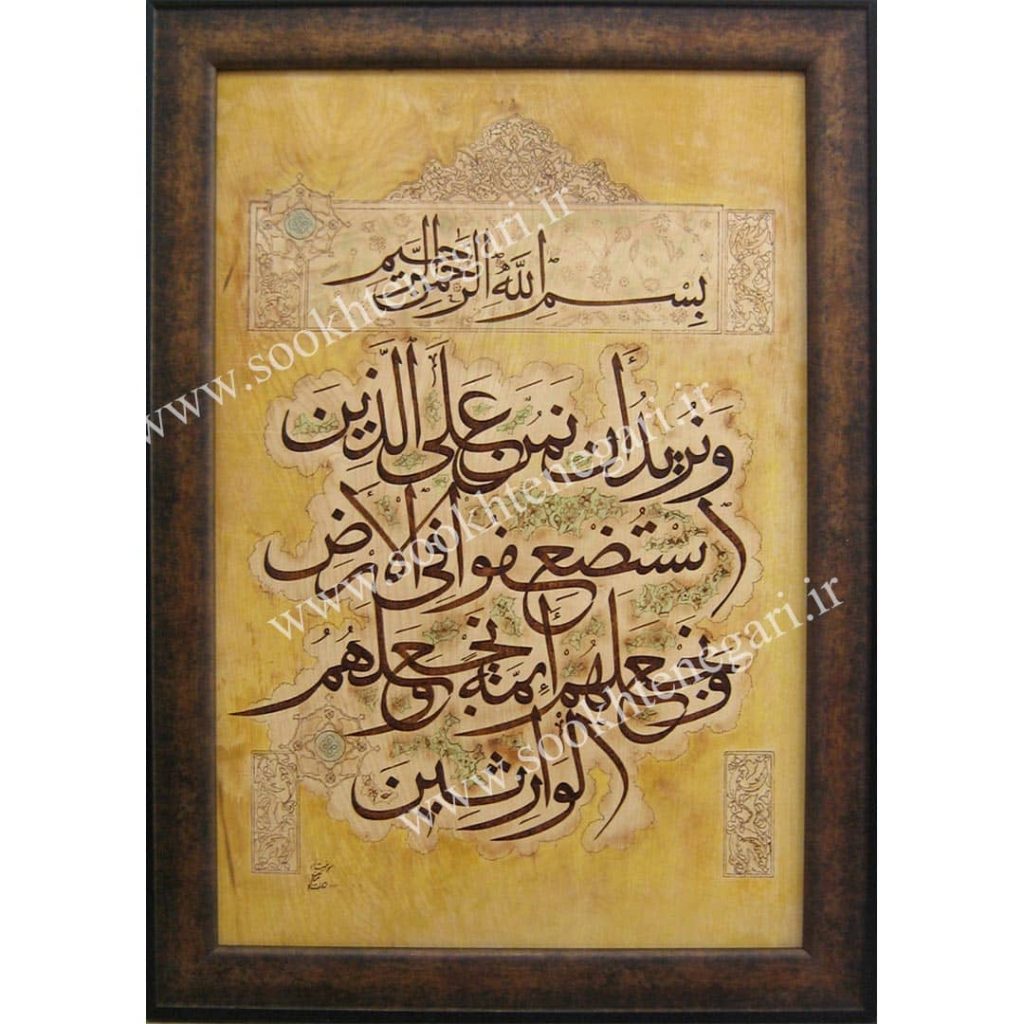 بِسْمِ اللّهِ الرَّحْمنِ الرَّحيمِ
وَنُريدُ أَن نَمُنَّ عَلَى الَّذينَ
اسْتُضْعِفُوا فِى الأَرْضِ
وَنَجْعَلَهُمْ أَئِمَّةً وَنَجْعَلَهُمُ
الْوارِثينَ
www.sookhtenegari.ir
www.sookhtenegari.ir
www.sookhtenegari.ir